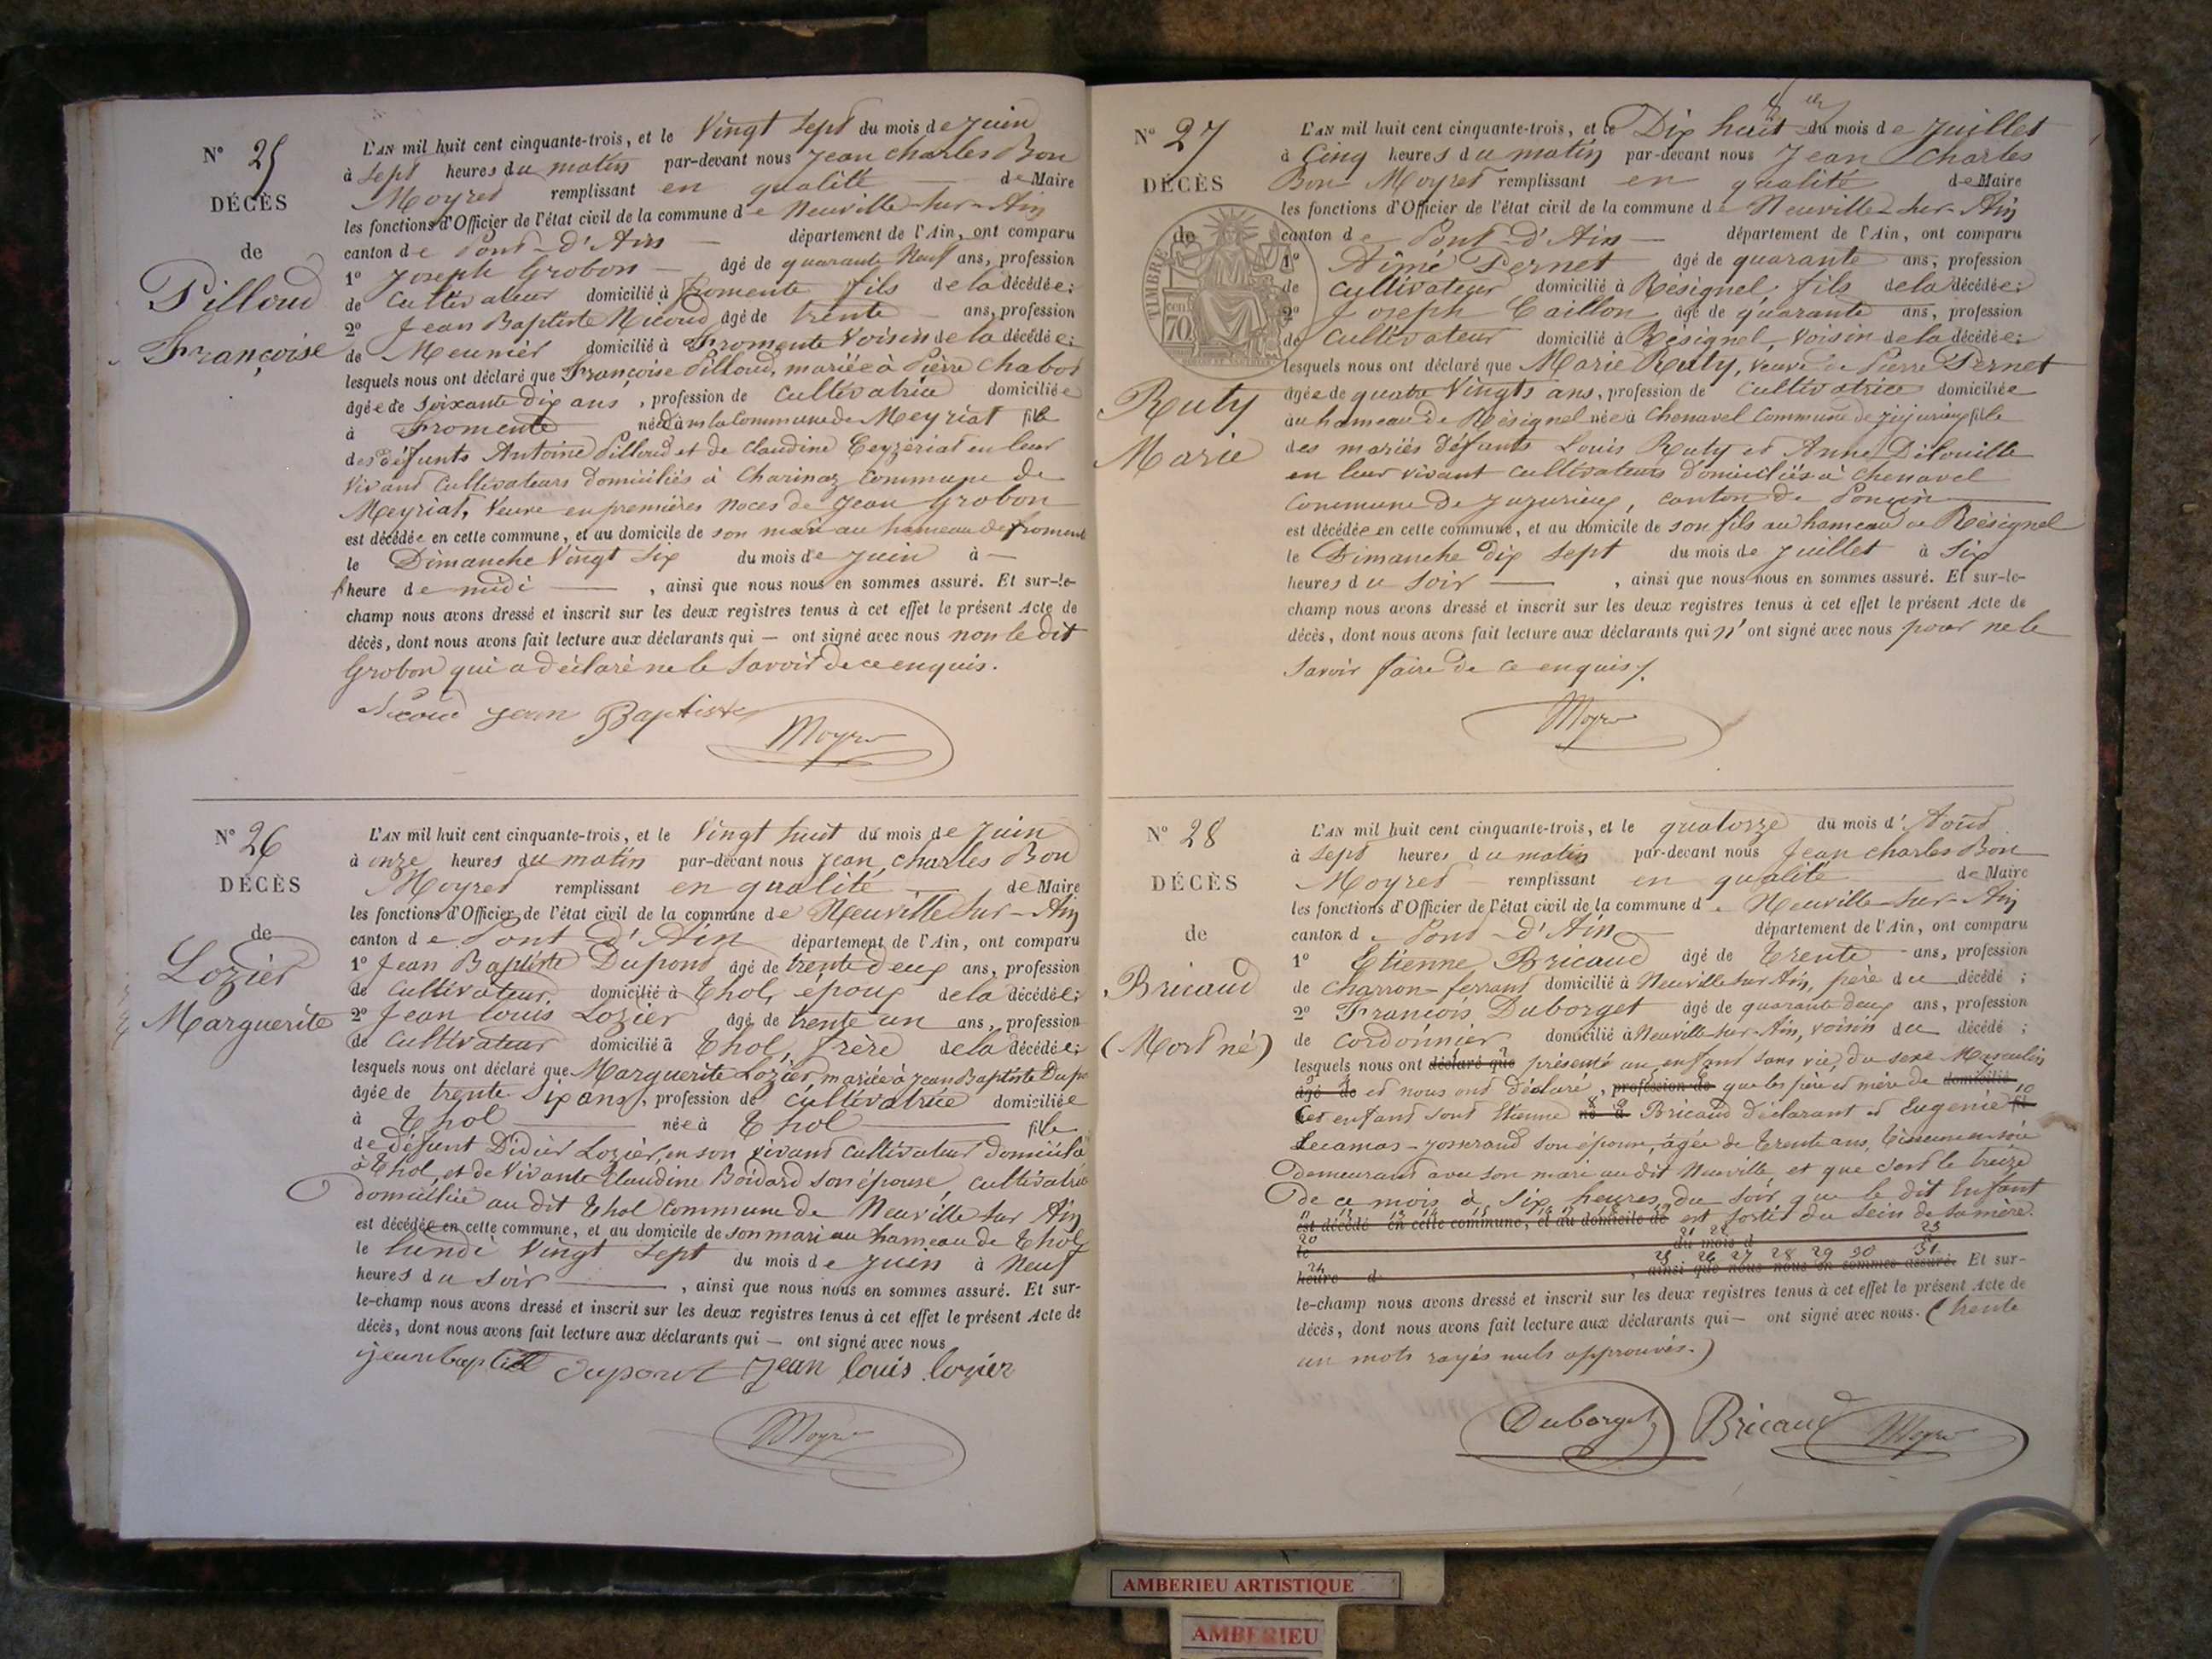 N° 25
DÉCÈS
de
Pilloud
Françoise
L'AN mil huit cent cinquante-trois, et le Vingt Sept du mois de Juin
à Sept heures du matin par-devant nous Jean Charles Bon
Moyret remplissant en qualité — de Maire
les fonctions d'Officier de l'état civil de la commune de Neuville-sur-Ain
canton de Pont-d'Ain — département de l'Ain, ont comparu
1° Joseph Grobon — âgé de quarante Neuf ans, profession
de Cultivateur domicilié à fromente fils de la décédée;
2° Jean Baptiste Nicoud âgé de trente — ans, profession
de Meunier domicilié à Fromente Voisin de la décédée;
lesquels nous ont déclaré que Françoise Pilloud, mariée à Pierre Chabot
âgée de Soixante dix ans, profession de Cultivatrice domiciliée
à Fromente née dans la Commune de Meyriat fille
des défunts Antoine Pilloud et de Claudine Ceyzériat en leur
Vivant Cultivateurs domiciliés à Charinaz Commune de
Meyriat, Veuve en premières Noces de Jean Grobon
est décédée en cette commune, et au domicile de son mari au hameau de froment
le Dimanche Vingt Six du mois de Juin à —
l'heure de midi —, ainsi que nous nous en sommes assuré. Et sur-le-
champ nous avons dressé et inscrit sur les deux registres tenus à cet effet le présent Acte de
décès, dont nous avons fait lecture aux déclarants qui — ont signé avec nous non le dit
Grobon qui a déclaré ne le Savoir de ce enquis.
Nicoud jean Baptiste
Moyret
N° 26
DÉCÈS
de
Lozier
Marguerite
L'AN mil huit cent cinquante-trois, et le Vingt huit du mois de Juin
à onze heures du matin par-devant nous Jean Charles Bon
Moyret remplissant en qualité — de Maire
les fonctions d'Officier de l'état civil de la commune de Neuville sur-Ain
canton de Pont d'Ain département de l'Ain, ont comparu
1° Jean Baptiste Dupont âgé de trente deux ans, profession
de Cultivateur, domicilié à Thol, époux de la décédée;
2° Jean Louis Lozier âgé de trente un ans, profession
de Cultivateur domicilié à Thol, frère de la décédée;
lesquels nous ont déclaré que Marguerite Lozier, mariée à Jean Baptiste Dupo
âgée de trente Six ans, profession de cultivatrice domiciliée
à Thol — née à Thol — fille
de défunt Didier Lozier, en son vivant Cultivateur domicilié
à Thol, et de Vivante Claudine Boidard son épouse, cultivatrice
domiciliée au dit Thol Commune de Neuville sur Ain
est décédée en cette commune, et au domicile de son mari au hameau de Thol
le lundi Vingt Sept du mois de Juin à Neuf
heures du Soir —, ainsi que nous nous en sommes assuré. Et sur-
le-champ nous avons dressé et inscrit sur les deux registres tenus à cet effet le présent Acte de
décès, dont nous avons fait lecture aux déclarants qui — ont signé avec nous
jean baptiste Dupont Jean louis lozier
Moyret
N° 27
DÉCÈS
de
Ruty
Marie
TIMBRE
70 cent
L'AN mil huit cent cinquante-trois, et le Dix huit du mois de Juillet
à Cinq heures du matin par-devant nous Jean Charles
Bon Moyret remplissant en qualité de Maire
les fonctions d'Officier de l'état civil de la commune de Neuville-sur-Ain
canton de Pont-d'Ain — département de l'Ain, ont comparu
1° Aimé Pernet âgé de quarante ans, profession
de Cultivateur domicilié à Résignel, fils de la décédée;
2° Joseph Caillon, âgé de quarante ans, profession
de Cultivateur domicilié à Résignel, Voisin de la décédée;
lesquels nous ont déclaré que Marie Ruty, veuve de Pierre Pernet
âgée de quatre Vingts ans, profession de Cultivatrice domiciliée
au hameau de Résignel née à Chenavel Commune de Jujurieux fille
des mariés défunts Louis Ruty et Anne Ditouille
en leur vivant Cultivateurs domiciliés à Chenavel
Commune de Jujurieux, canton de Poncin —
est décédée en cette commune, et au domicile de son fils au hameau de Résignel
le Dimanche dix Sept du mois de Juillet à Six
heures du Soir —, ainsi que nous nous en sommes assuré. Et sur-le-
champ nous avons dressé et inscrit sur les deux registres tenus à cet effet le présent Acte de
décès, dont nous avons fait lecture aux déclarants qui n'ont signé avec nous pour ne le
Savoir faire de ce enquis.
Moyret
N° 28
DÉCÈS
de
Bricaud
(Mort né)
L'AN mil huit cent cinquante-trois, et le quatorze du mois d'Août
à Sept heures du matin par-devant nous Jean Charles Bon
Moyret — remplissant en qualité — de Maire
les fonctions d'Officier de l'état civil de la commune de Neuville-sur-Ain
canton de Pont-d'Ain — département de l'Ain, ont comparu
1° Etienne Bricaud âgé de trente ans, profession
de Charron-ferrant domicilié à Neuville sur Ain, père du décédé;
2° François Duborget âgé de quarante deux ans, profession
de Cordonnier domicilié à Neuville-sur-Ain, voisin du décédé;
lesquels nous ont déclaré que présenté un enfant sans vie, du sexe Masculin
âgé de et nous ont déclaré, profession de que les père et mère de domicilié
Cet enfant sont Etienne né à Bricaud déclarant et Eugénie fil
Lecamas-Josserand son épouse, âgée de trente ans,
demeurant avec son mari au dit Neuville et que c'est le treize
de ce mois à Six heures du Soir que le dit Enfant
est décédé en cette commune, et au domicile de est sorti du Sein de sa mère.
le du mois d
heure d , ainsi que nous nous en sommes assuré. Et sur-
le-champ nous avons dressé et inscrit sur les deux registres tenus à cet effet le présent Acte de
décès, dont nous avons fait lecture aux déclarants qui — ont signé avec nous. (trente
un mots rayés nuls approuvés.)
Duborget Bricaud Moyret
AMBERIEU ARTISTIQUE
AMBERIEU